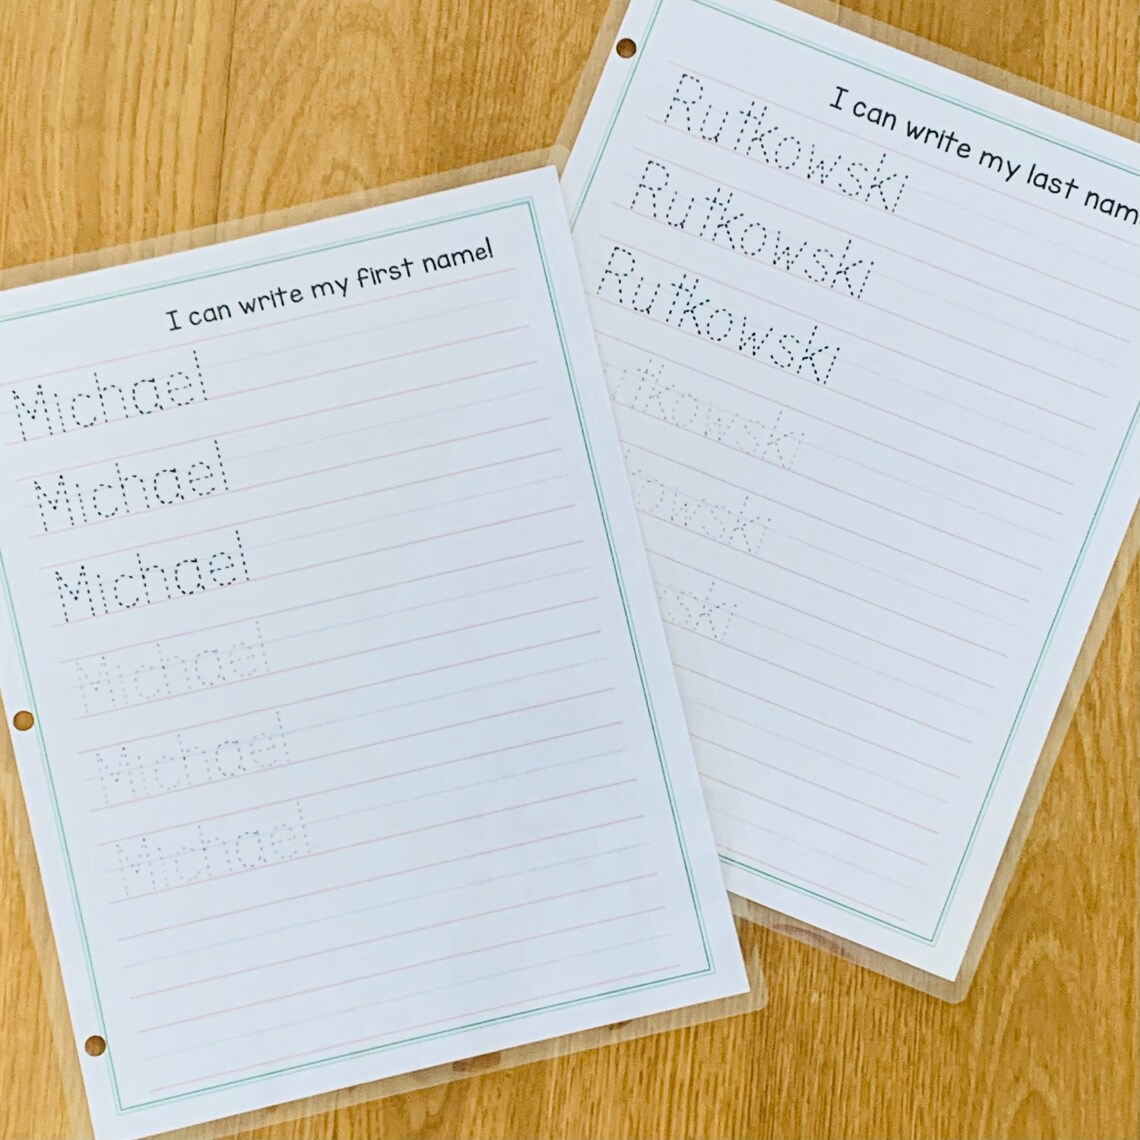 I can write my first name!
Michael
Michael
Michael
Michael
Michael
Michael
I can write my last nam
Rutkowski
Rutkowski
Rutkowski
tkowski
owski
ski